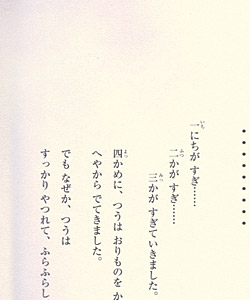 一にちが すぎ……
二かが すぎ……
三かが すぎていきました。
四かめに、つうは おりものを か
へやから でてきました。
でも なぜか、つうは
すっかり やつれて、ふらふらし